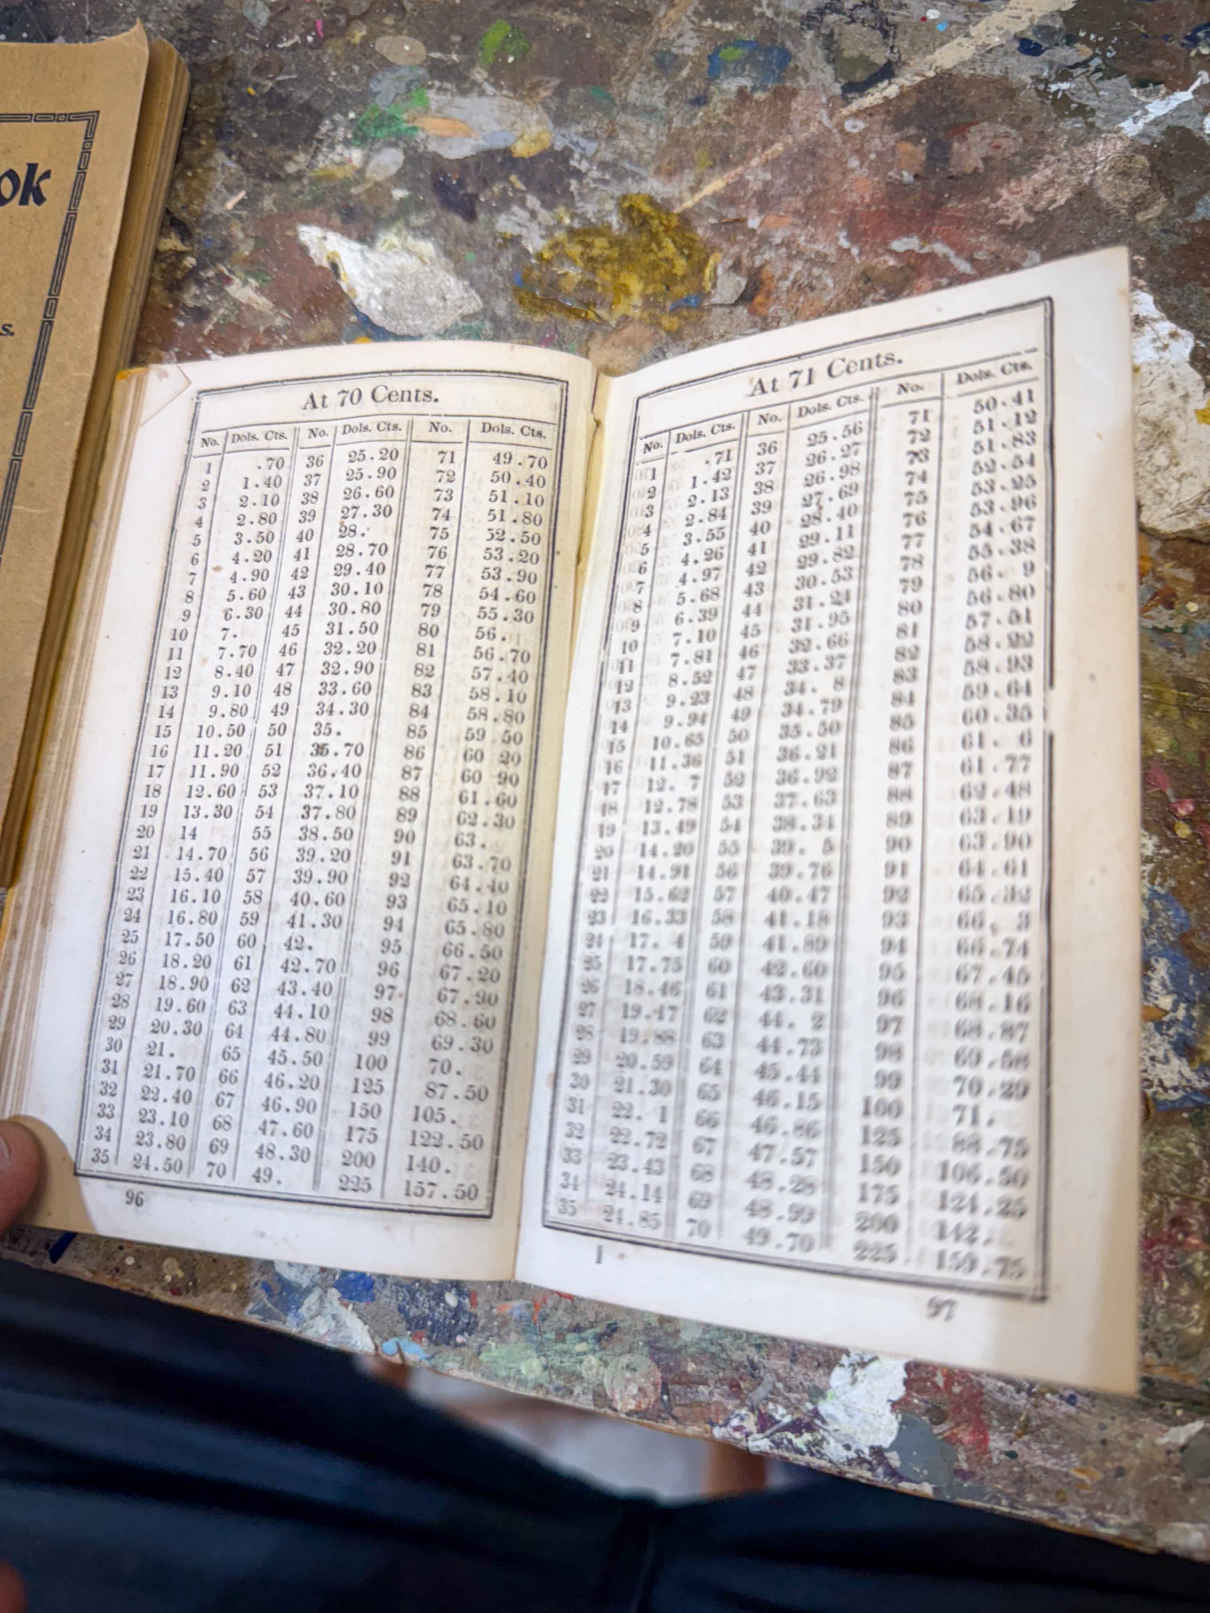 ok
s.
At 70 Cents.
No. Dols. Cts. No. Dols. Cts. No. Dols. Cts.
1 .70 36 25.20 71 49.70
2 1.40 37 25.90 72 50.40
3 2.10 38 26.60 73 51.10
4 2.80 39 27.30 74 51.80
5 3.50 40 28. 75 52.50
6 4.20 41 28.70 76 53.20
7 4.90 42 29.40 77 53.90
8 5.60 43 30.10 78 54.60
9 6.30 44 30.80 79 55.30
10 7. 45 31.50 80 56.
11 7.70 46 32.20 81 56.70
12 8.40 47 32.90 82 57.40
13 9.10 48 33.60 83 58.10
14 9.80 49 34.30 84 58.80
15 10.50 50 35. 85 59 50
16 11.20 51 35.70 86 60 20
17 11.90 52 36.40 87 60 90
18 12.60 53 37.10 88 61.60
19 13.30 54 37.80 89 62.30
20 14 55 38.50 90 63.
21 14.70 56 39.20 91 63.70
22 15.40 57 39.90 92 64.40
23 16.10 58 40.60 93 65.10
24 16.80 59 41.30 94 65.80
25 17.50 60 42. 95 66.50
26 18.20 61 42.70 96 67.20
27 18.90 62 43.40 97 67.90
28 19.60 63 44.10 98 68.60
29 20.30 64 44.80 99 69.30
30 21. 65 45.50 100 70.
31 21.70 66 46.20 125 87.50
32 22.40 67 46.90 150 105.
33 23.10 68 47.60 175 122.50
34 23.80 69 48.30 200 140.
35 24.50 70 49. 225 157.50
96
At 71 Cents.
No. Dols. Cts. No. Dols. Cts. No. Dols. Cts.
1 .71 36 25.56 71 50.41
2 1.42 37 26.27 72 51.12
3 2.13 38 26.98 73 51.83
4 2.84 39 27.69 74 52.54
5 3.55 40 28.40 75 53.25
6 4.26 41 29.11 76 53.96
7 4.97 42 29.82 77 54.67
8 5.68 43 30.53 78 55.38
9 6.39 44 31.24 79 56. 9
10 7.10 45 31.95 80 56.80
11 7.81 46 32.66 81 57.51
12 8.52 47 33.37 82 58.22
13 9.23 48 34. 8 83 58.93
14 9.94 49 34.79 84 59.64
15 10.65 50 35.50 85 60.35
16 11.36 51 36.21 86 61. 6
17 12. 7 52 36.92 87 61.77
18 12.78 53 37.63 88 62.48
19 13.49 54 38.34 89 63.19
20 14.20 55 39. 5 90 63.90
21 14.91 56 39.76 91 64.61
22 15.62 57 40.47 92 65.32
23 16.33 58 41.18 93 66. 3
24 17. 4 59 41.89 94 66.74
25 17.75 60 42.60 95 67.45
26 18.46 61 43.31 96 68.16
27 19.17 62 44. 2 97 68.87
28 19.88 63 44.73 98 69.58
29 20.59 64 45.44 99 70.29
30 21.30 65 46.15 100 71.
31 22. 1 66 46.86 125 88.75
32 22.72 67 47.57 150 106.50
33 23.43 68 48.28 175 124.25
34 24.14 69 48.99 200 142.
35 24.85 70 49.70 225 159.75
I
97